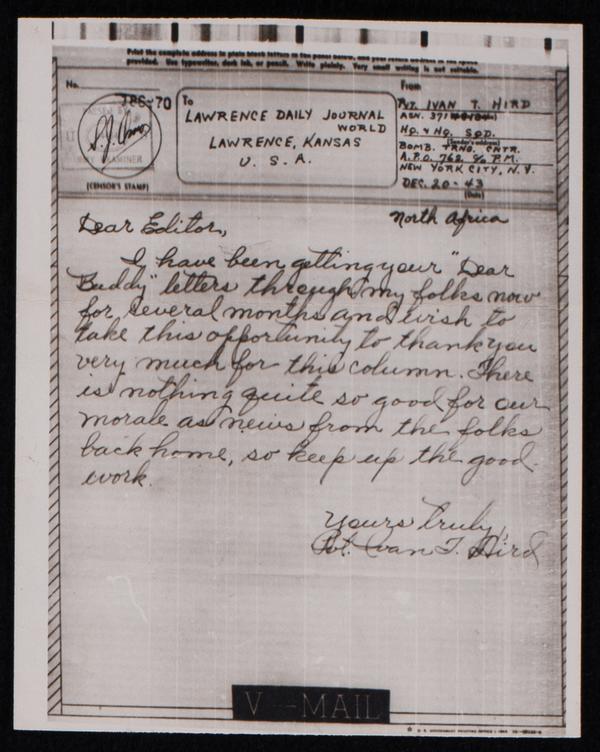 Print the complete address in plain block letters in the panel below, and your return address in the space
provided. Use typewriter, dark ink, or pencil. Write plainly. Very small writing is not suitable.
No.
To
LAWRENCE DAILY JOURNAL
WORLD
LAWRENCE, KANSAS
U. S. A.
From
PVT. IVAN T. HIRD
ASN. 371
HQ. & HQ. SQD.
(Sender's address)
BOMB. TRNG. CNTR.
A.P.O. 762 % P.M.
NEW YORK CITY, N.Y.
DEC. 20 - 43
(Date)
EXAMINER
(CENSOR'S STAMP)
North Africa
Dear Editor,
I have been getting your "Dear
Buddy" letters through my folks now
for several months and wish to
take this opportunity to thank you
very much for this column. There
is nothing quite so good for our
morale as news from the folks
back home, so keep up the good
work.
Yours truly,
Pvt. Ivan T. Hird
V - MAIL